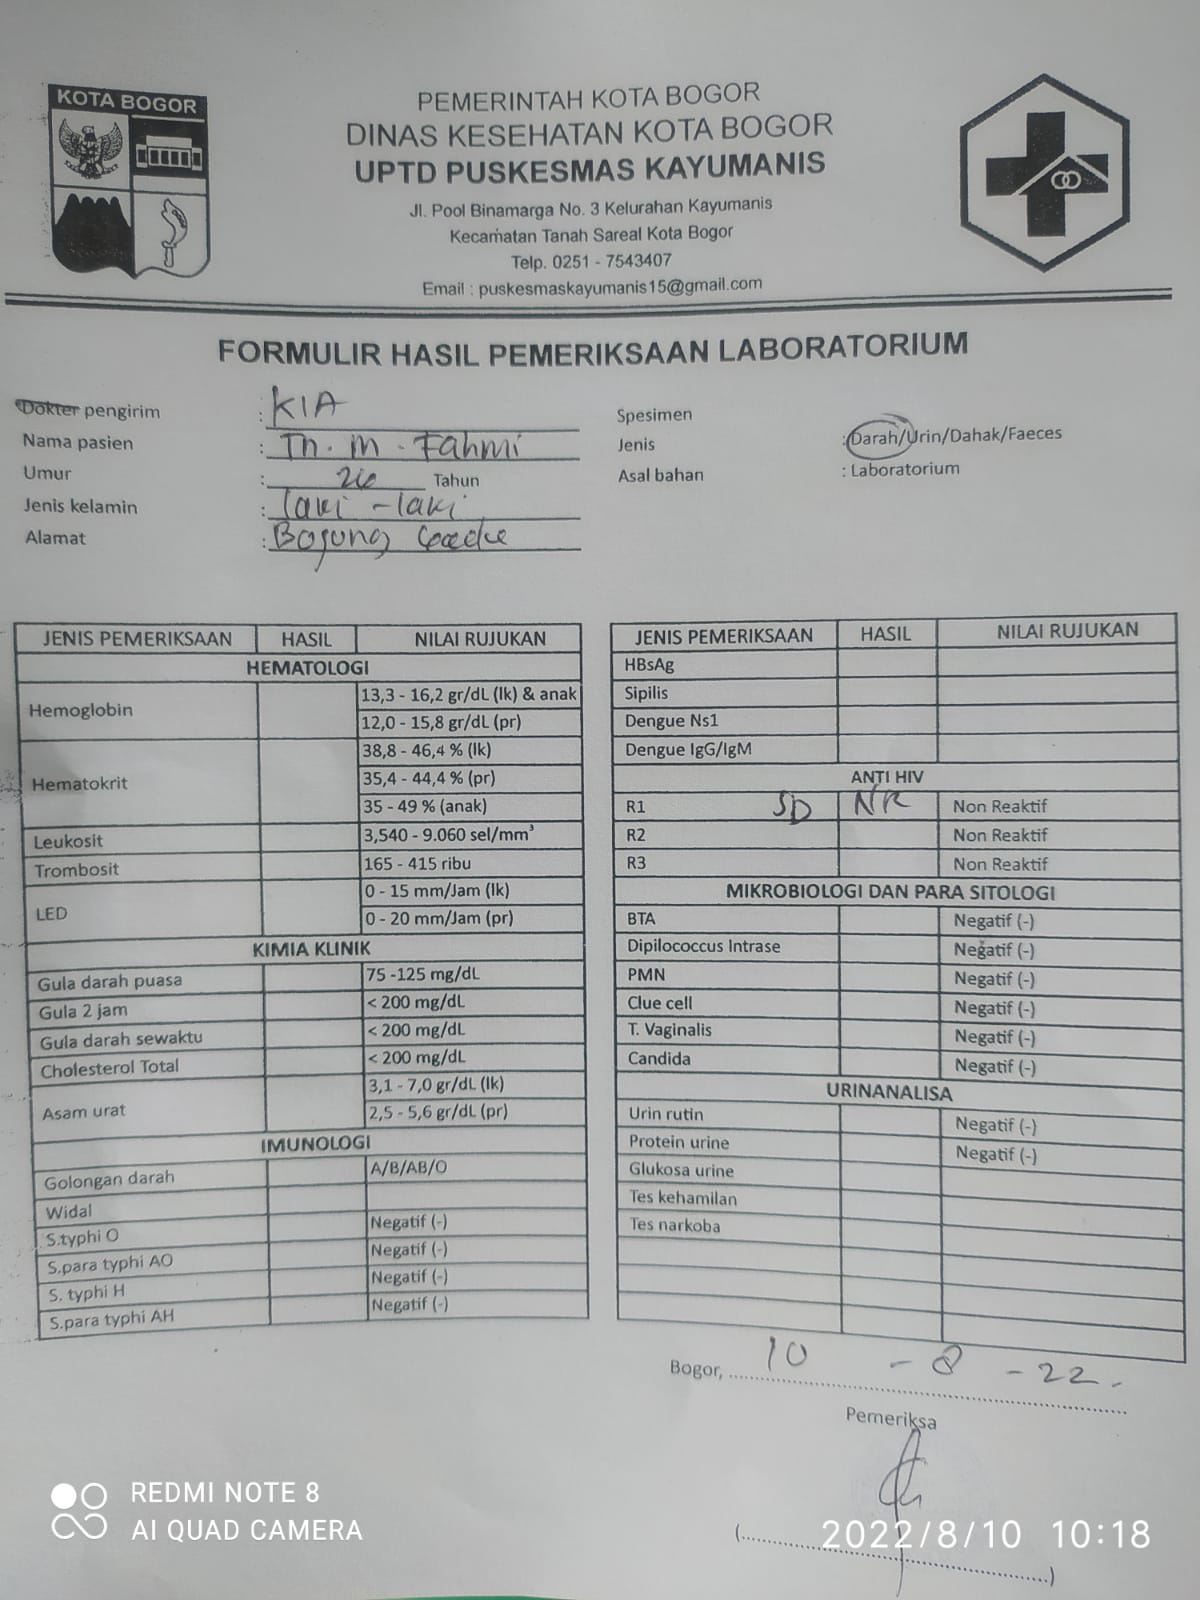 KOTA BOGOR
PEMERINTAH KOTA BOGOR
DINAS KESEHATAN KOTA BOGOR
UPTD PUSKESMAS KAYUMANIS
Jl. Pool Binamarga No. 3 Kelurahan Kayumanis
Kecamatan Tanah Sareal Kota Bogor
Telp. 0251 - 7543407
Email : puskesmaskayumanis15@gmail.com
FORMULIR HASIL PEMERIKSAAN LABORATORIUM
Dokter pengirim : KIA
Nama pasien : Tn. M. Fahmi
Umur : 26 Tahun
Jenis kelamin : laki - laki
Alamat : Bojong Gede
Spesimen
Jenis : Darah/Urin/Dahak/Faeces
Asal bahan : Laboratorium
JENIS PEMERIKSAAN HASIL NILAI RUJUKAN
HEMATOLOGI
Hemoglobin 13,3 - 16,2 gr/dL (lk) & anak
12,0 - 15,8 gr/dL (pr)
Hematokrit 38,8 - 46,4 % (lk)
35,4 - 44,4 % (pr)
35 - 49 % (anak)
Leukosit 3,540 - 9.060 sel/mm³
Trombosit 165 - 415 ribu
LED 0 - 15 mm/Jam (lk)
0 - 20 mm/Jam (pr)
KIMIA KLINIK
Gula darah puasa 75 -125 mg/dL
Gula 2 jam < 200 mg/dL
Gula darah sewaktu < 200 mg/dL
Cholesterol Total < 200 mg/dL
Asam urat 3,1 - 7,0 gr/dL (lk)
2,5 - 5,6 gr/dL (pr)
IMUNOLOGI
Golongan darah A/B/AB/O
Widal
S.typhi O Negatif (-)
S.para typhi AO Negatif (-)
S. typhi H Negatif (-)
S.para typhi AH Negatif (-)
JENIS PEMERIKSAAN HASIL NILAI RUJUKAN
HBsAg
Sipilis
Dengue Ns1
Dengue IgG/IgM
ANTI HIV
R1 SD NR Non Reaktif
R2 Non Reaktif
R3 Non Reaktif
MIKROBIOLOGI DAN PARA SITOLOGI
BTA Negatif (-)
Dipilococcus Intrase Negatif (-)
PMN Negatif (-)
Clue cell Negatif (-)
T. Vaginalis Negatif (-)
Candida Negatif (-)
URINANALISA
Urin rutin Negatif (-)
Protein urine Negatif (-)
Glukosa urine
Tes kehamilan
Tes narkoba
Bogor, 10 - 8 - 22.
Pemeriksa
REDMI NOTE 8
AI QUAD CAMERA
2022/8/10 10:18